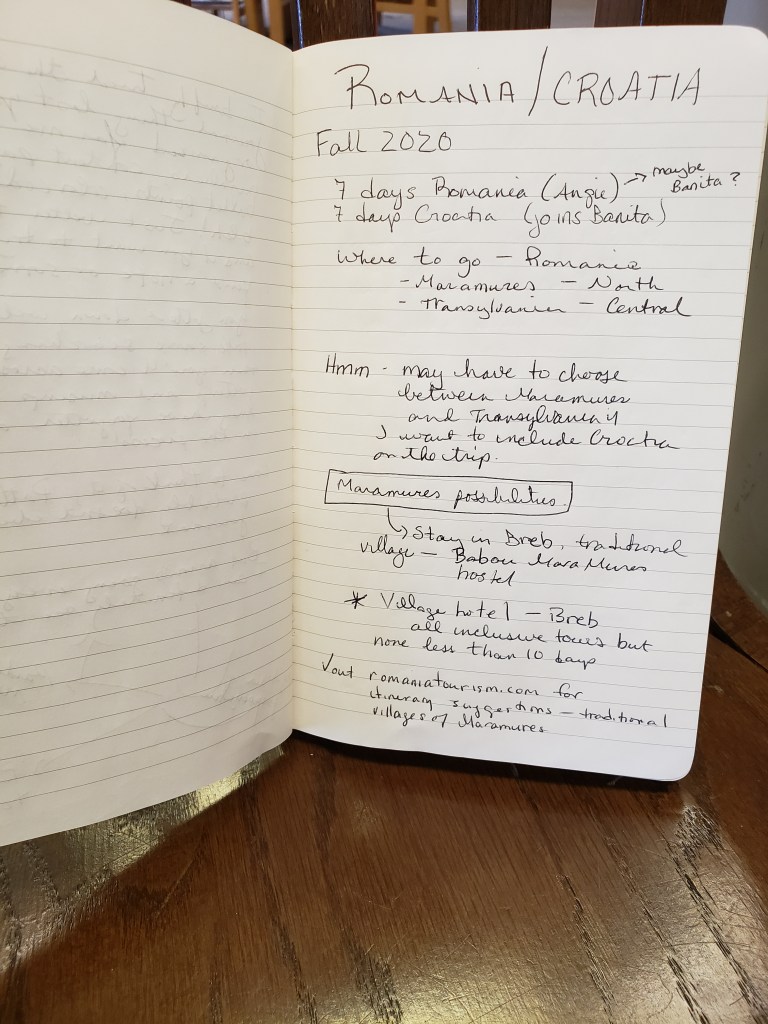 ROMANIA/CROATIA
Fall 2020
7 days Romania (Angie) → maybe Banita?
7 days Croatia (joins Banita)
where to go - Romania
- Maramures - North
- Transylvania - Central
Hmm - may have to choose
between Maramures
and Transylvania if
I want to include Croatia
on the trip.
Maramures possibilities
Stay in Breb, traditional
village - Babou MaraMures
hostel
* Village hotel - Breb
all inclusive tours but
none less than 10 days
√ out romaniatourism.com for
itinerary suggestions - traditional
villages of Maramures